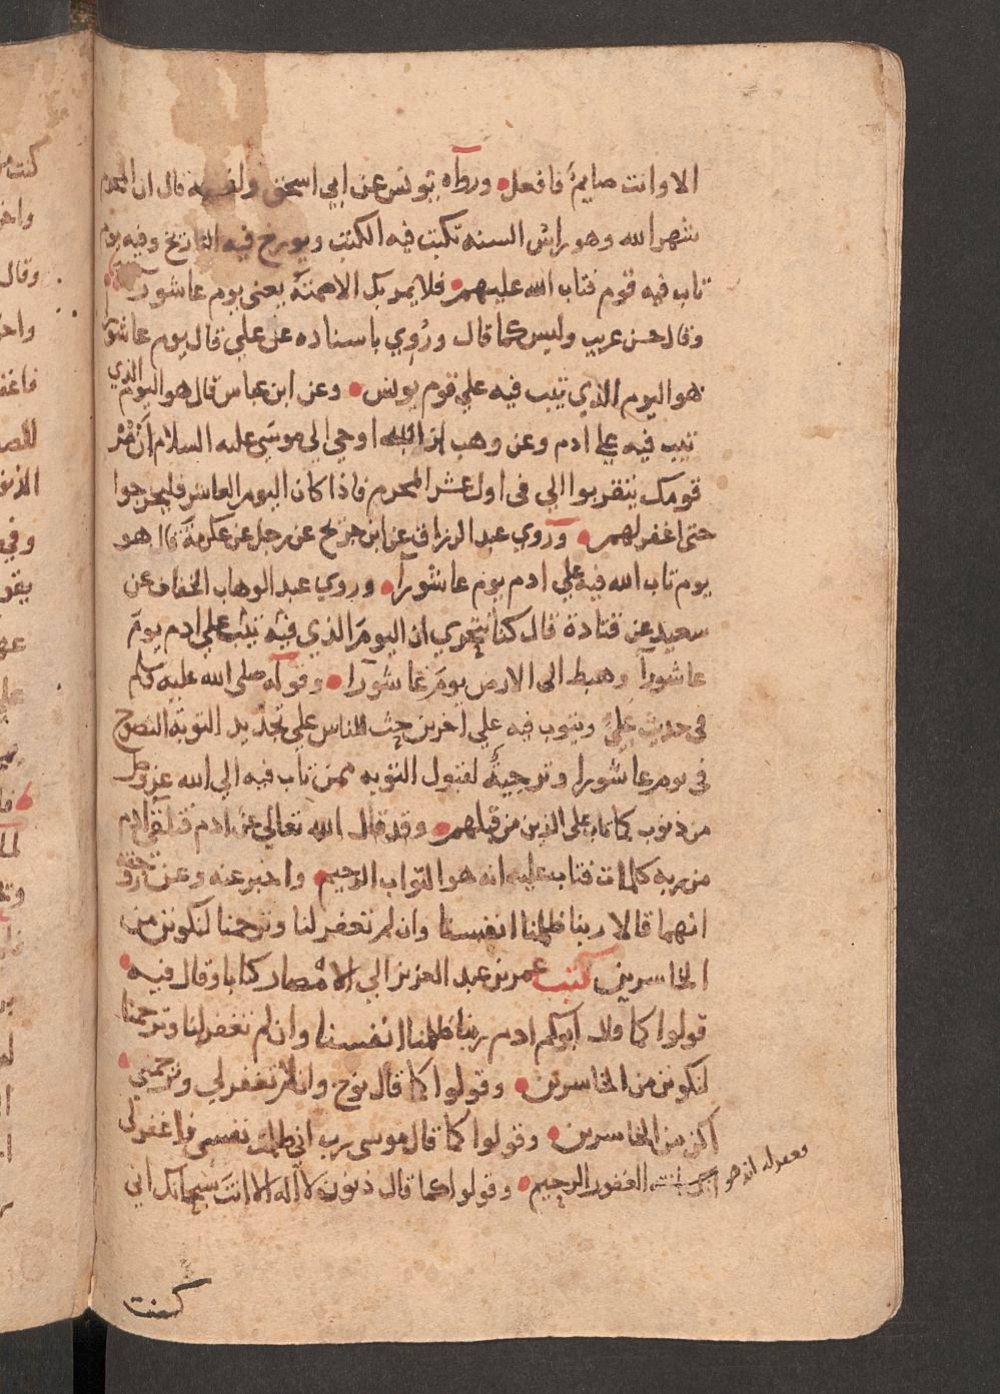 الا وانت صايم فافعل ورواه يونس عن ابي اسحق ولفظه قال ان المحرم
شهر الله وهو راس السنه تكتب فيه الكتب ويورخ فيه التاريخ وفيه يوم
تاب فيه قوم فتاب الله عليهم فلا يمر بك الا صمته يعني يوم عاشورآ
وقال حسن غريب وليس كما قال ورُوي باسناده عن علي قال يوم عاشورا
هو اليوم الذي تيب فيه علي قوم يونس وعن ابن عباس قال هو اليوم الذي
تيب فيه علي ادم وعن وهب ان الله اوحي الى موسَي عليه السلام اَنْ مُرْ
قومك يتقربوا الي فى اول عشر المحرم فاذا كان اليوم العاشر فليخرجوا
حتى اغفر لهم وروي عبد الرزاق عن ابن جريج عن رجل عن عكرمة قال هو
يوم تاب الله فيه علي ادم يوم عاشورآ وروي عبد الوهاب الخفاف عن
سعيد عن قتادة قال كنا نتحدث ان اليومَ الذي فيه تيب علي ادم يومَ
عاشورآ وهبط الى الارض يومَ عاشورآ وقوله صلى الله عليه وسلم
فى حديث عليٍّ ويتوب فيه علي اخرين حث للناس علي تجديد التوبة النصوح
فى يوم عاشورا وترجيةٌ لقبول التوبه ممن تاب فيه الي الله عز وجل
من ذنوب كما تاب على الذين من قبلهم وقد قال الله تعالي عن ادم فتلقى ادم
من ربه كلمات فتاب عليه انه هو التواب الرحيم واخبر عنه وعن زوجته
انهما قالا ربنا ظلمنا انفسنا وان لم تغفر لنا وترحمنا لنكونن من
الخاسرين كتب عمر بن عبد العزيز الي الامصار كتابا وقال فيه
قولوا كما قال ابوكم ادم ربنا ظلمنا انفسنا وان لم تغفر لنا وترحمنا
لنكونن من الخاسرين وقولوا كما قال نوح وان لم تغفر لي وترحمني
اكن من الخاسرين وقولوا كما قال موسى رب اني ظلمت نفسي فاغفر لى
فغفر له انه هو الغفور الرحيم وقولوا كما قال ذو النون لا اله الا انت سبحانك اني
كنت